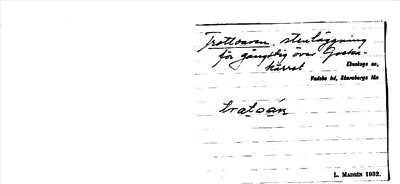 Trottoaren, stenläggning
för gångstig över Gosta-
kärret
Ekeskogs sn,
Vadsbo hd, Skaraborgs län
tratoán
L. MADSÉN 1932.